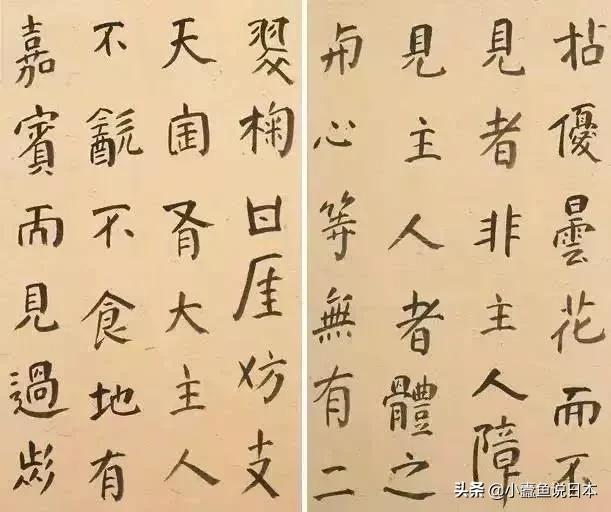 拈優曇花而不
見者非主人障
見主人者體之
与心等無有二
日厓支
天胥大主人
不不食地有
嘉賓而見過
头条 @小蠹鱼说日本